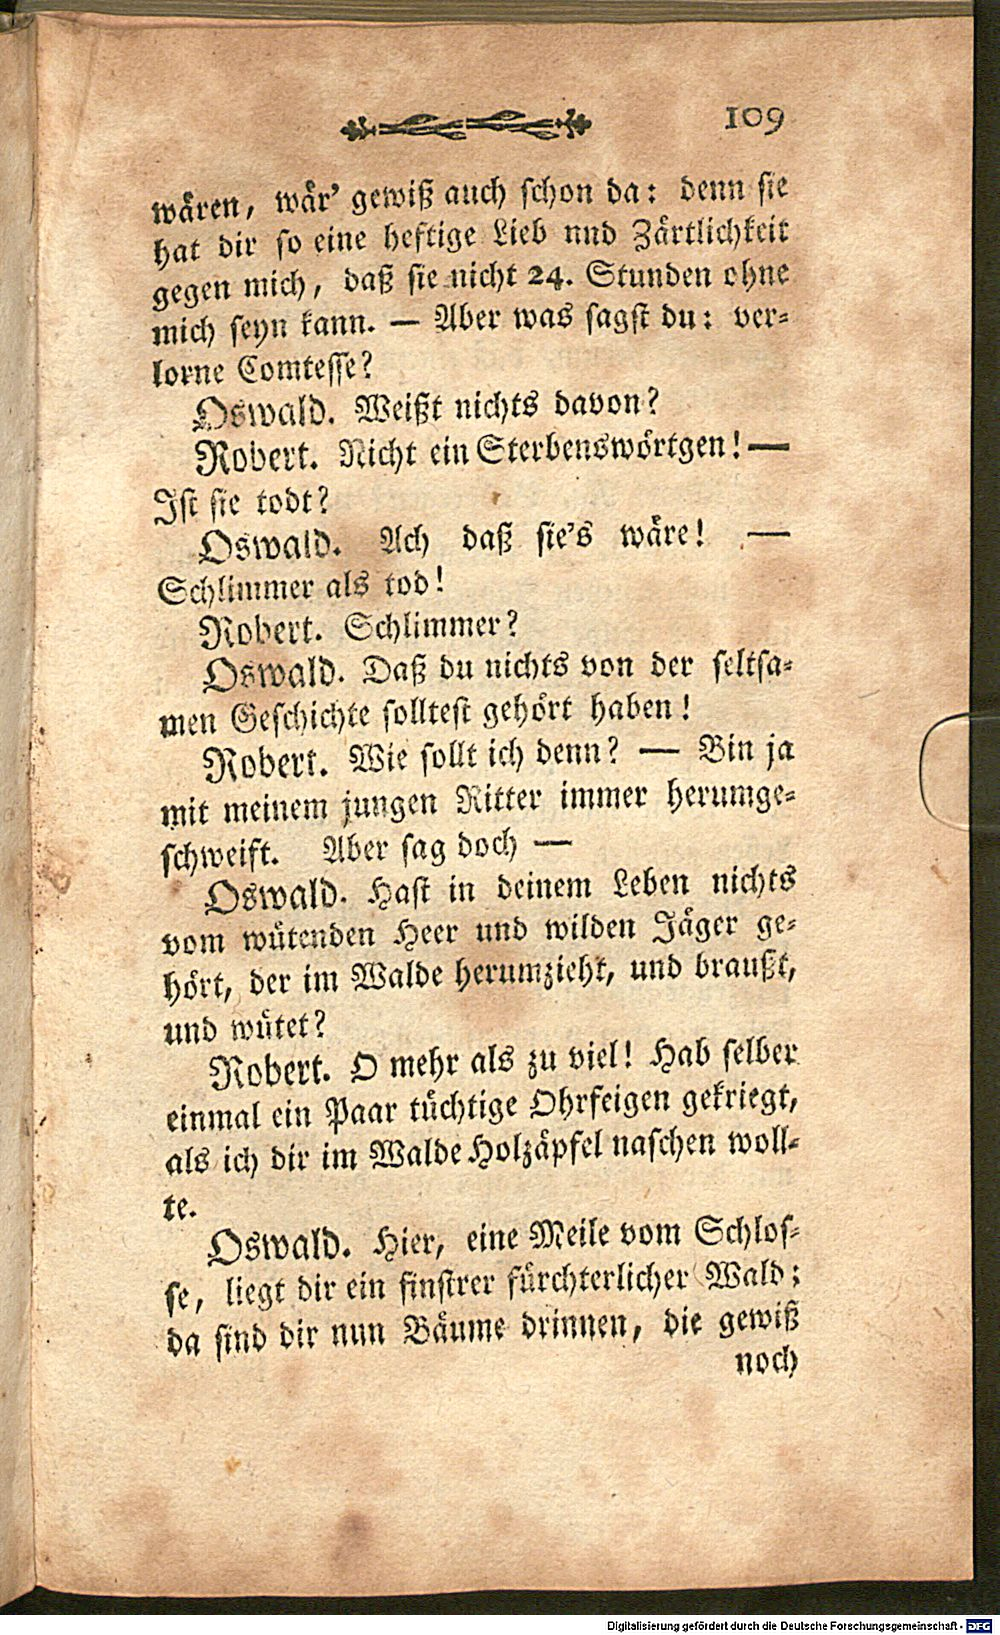 109
wären, wär' gewiß auch schon da: denn sie
hat dir so eine heftige Lieb nnd Zärtlichkeit
gegen mich, daß sie nicht 24. Stunden ohne
mich seyn kann. — Aber was sagst du: ver-
lorne Comtesse?
Oswald. Weißt nichts davon?
Robert. Nicht ein Sterbenswörtgen! —
Ist sie todt?
Oswald. Ach daß sie's wäre! —
Schlimmer als tod!
Robert. Schlimmer?
Oswald. Daß du nichts von der seltsa-
men Geschichte solltest gehört haben!
Robert. Wie sollt ich denn? — Bin ja
mit meinem jungen Ritter immer herumge-
schweift. Aber sag doch —
Oswald. Hast in deinem Leben nichts
vom wütenden Heer und wilden Jäger ge-
hört, der im Walde herumzieht, und braußt,
und wütet?
Robert. O mehr als zu viel! Hab selber
einmal ein Paar tüchtige Ohrfeigen gekriegt,
als ich dir im Walde Holzäpfel naschen woll-
te.
Oswald. Hier, eine Meile vom Schlos-
se, liegt dir ein finstrer fürchterlicher Wald;
da sind dir nun Bäume drinnen, die gewiß
noch
Digitalisierung gefördert durch die Deutsche Forschungsgemeinschaft - DFG